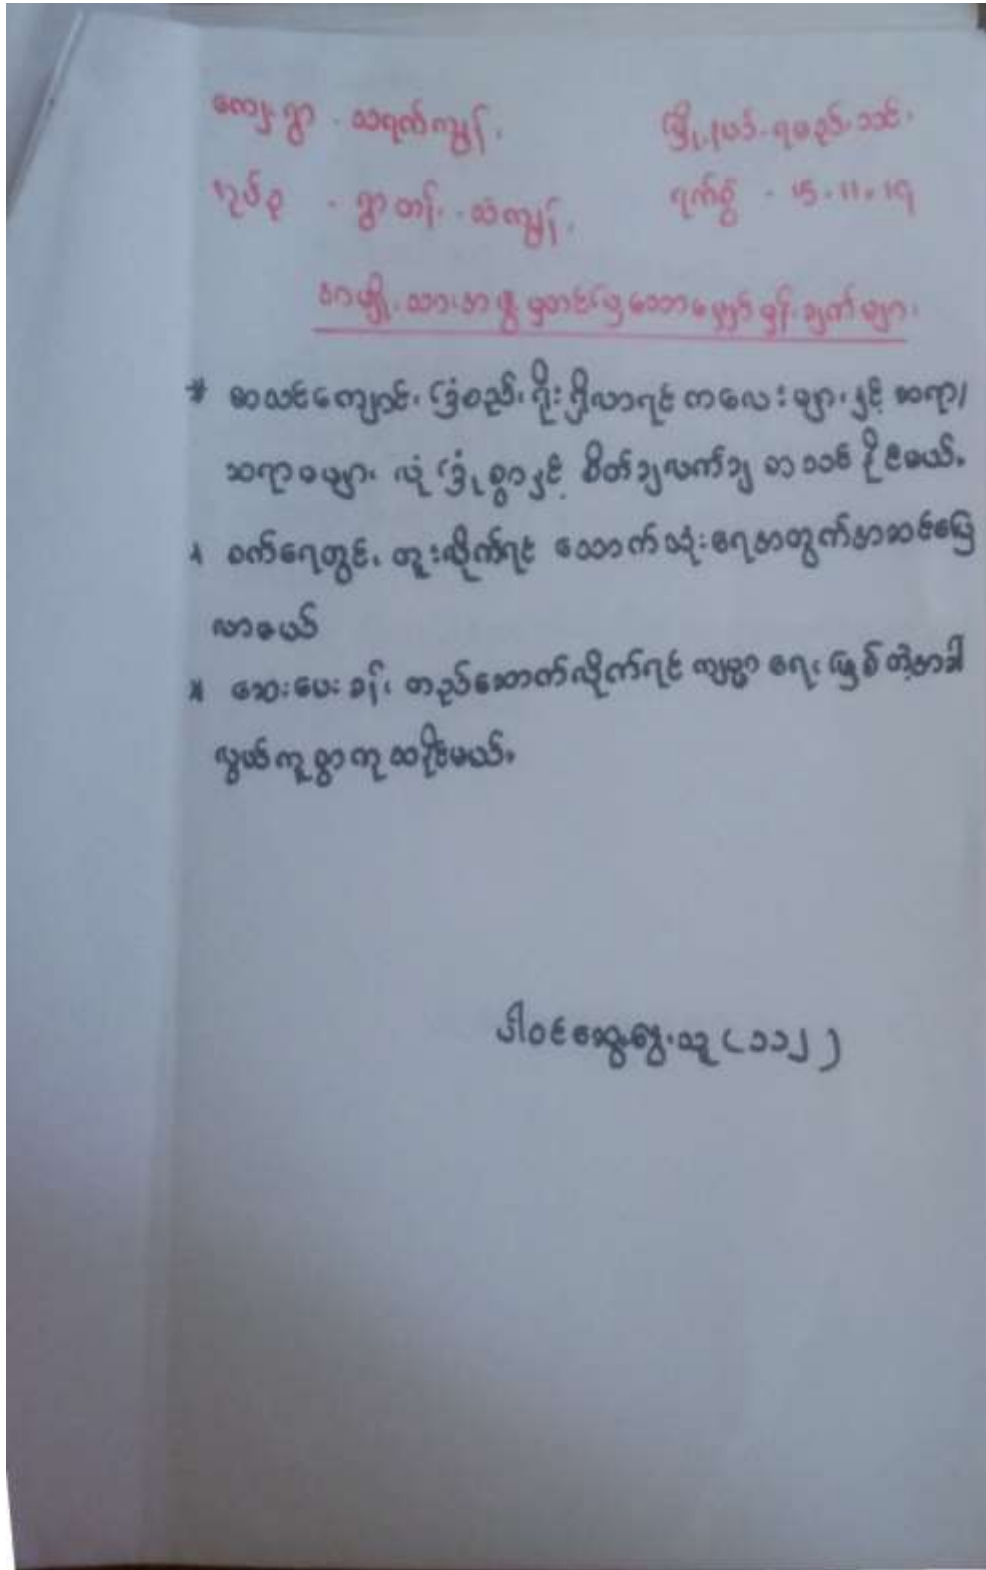 ကျေးရွာ - သရက်ကျွန်း မြို့နယ် - ရမည်းသင်း
အုပ်စု - ရွာတန်း - သံကျွန်း ရက်စွဲ - ၂၅.၁၁.၁၅
အမျိုးသားအဖွဲ့မှတင်ပြသောမျှော်မှန်းချက်များ
* စာသင်ကျောင်း ခြံစည်းရိုးရှိလာရင် ကလေးများနှင့် ဆရာ/
ဆရာမများ လုံခြုံစွာနှင့် စိတ်ချလက်ချ စာသင်နိုင်မယ်။
* စက်ရေတွင်း တူးလိုက်ရင် သောက်သုံးရေအတွက်အဆင်ပြေ
လာမယ်
* ဆေးပေးခန်း တည်ဆောက်လိုက်ရင် ကျန်းမာရေး ဖြစ်တဲ့အခါ
လွယ်ကူစွာကုသနိုင်မယ်။
ပါဝင်ဆွေးနွေးသူ (၁၁၂)